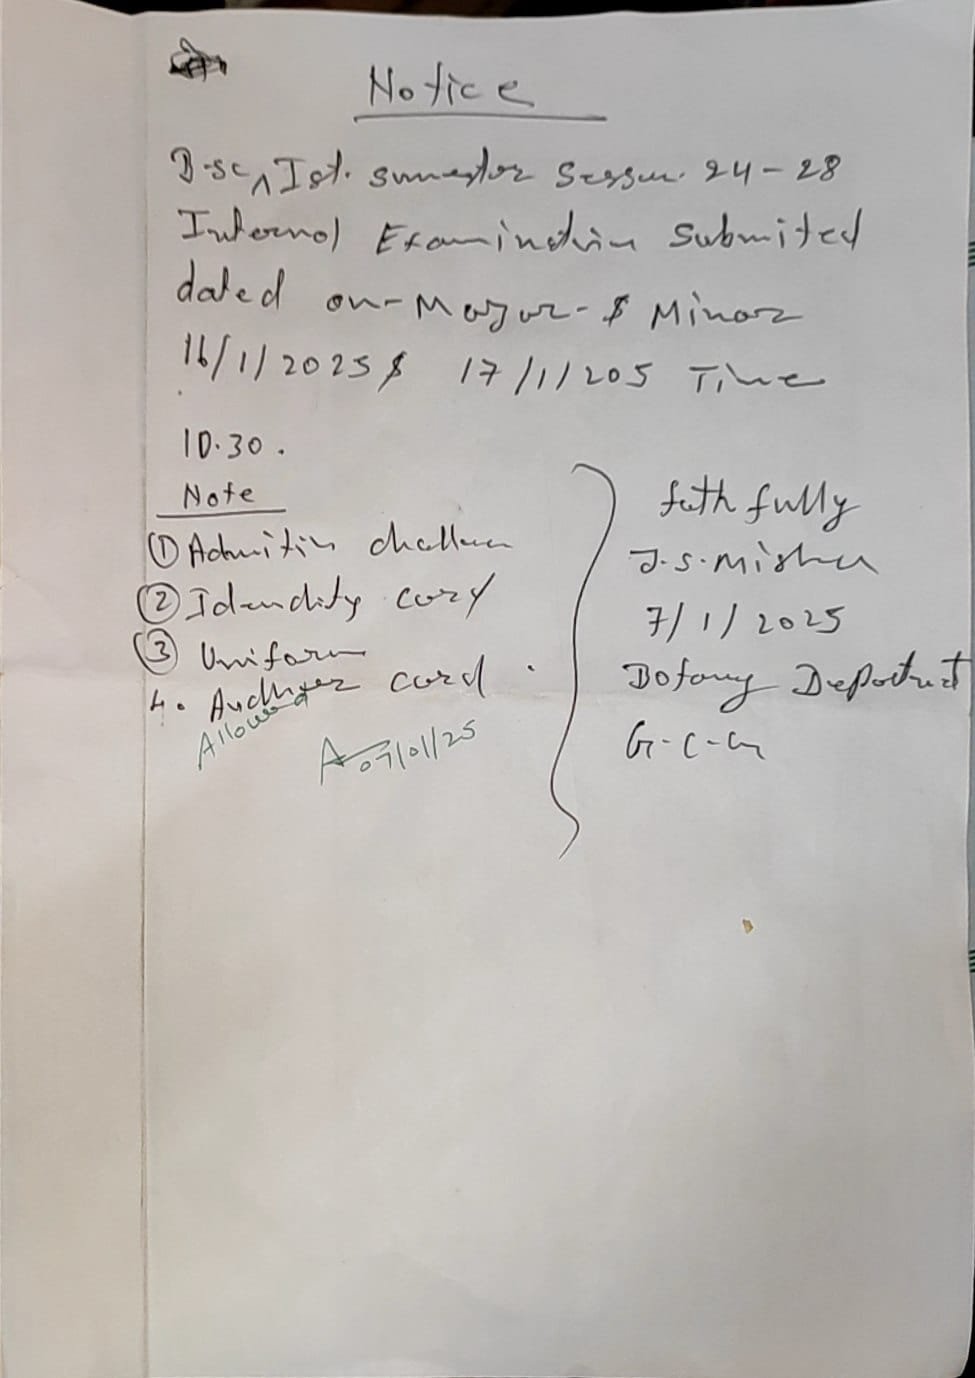 Notice
B-sc, Ist. summestor Sessun. 24-28
Internol Examindtion Submited
dated on-Mayor-$ Minor
16/1/2025 $ 17/1/205 Time
10.30.
Note
① Admitin challan
② Idendity card
③ Uniform
4. Audhger card
Allowed
07/01/25
fathfully
J.S.Mishra
7/1/2025
Botany Deportmet
G-C-G